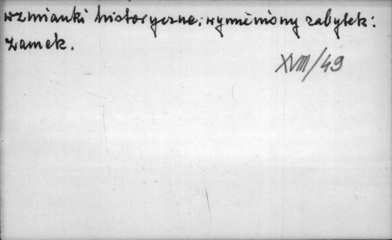 wzmianki historyczne; wymieniony zabytek:
zamek.
XVIII/49